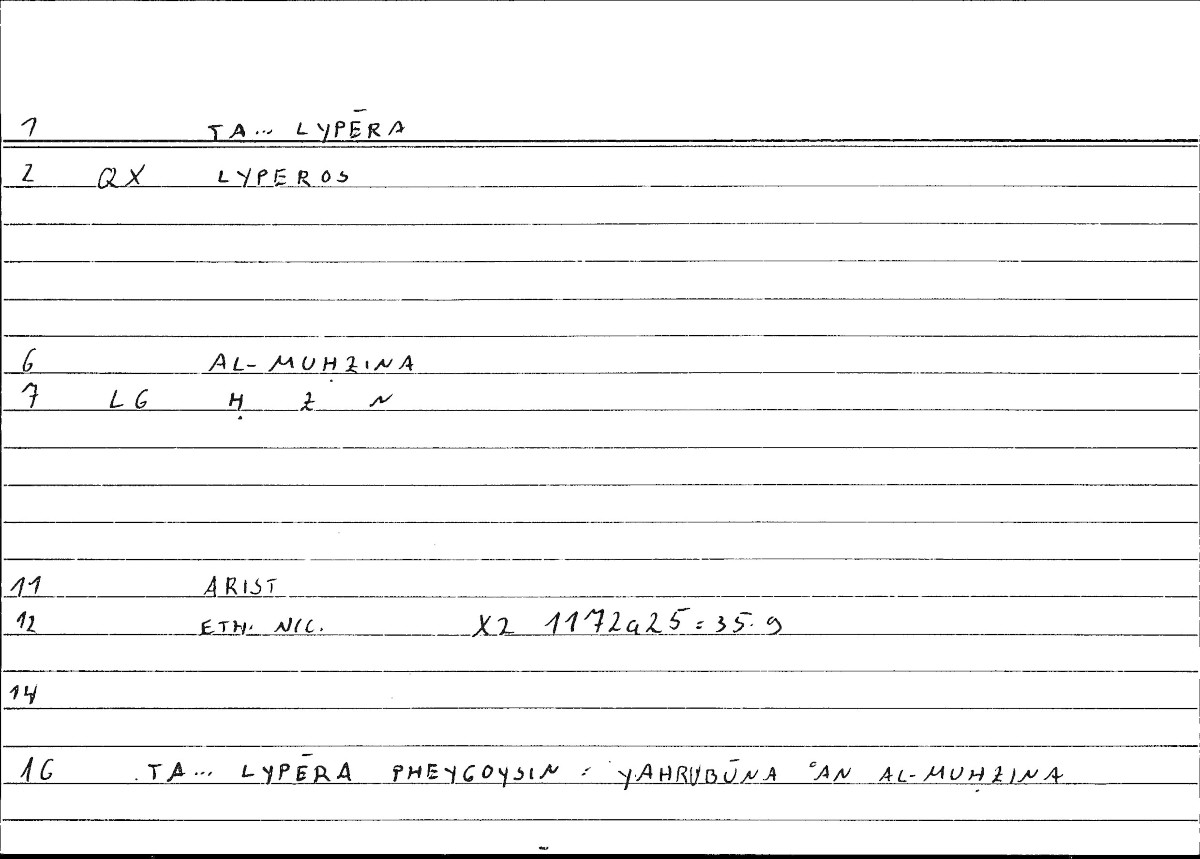 1 TA... LYPĒRA
2 QX LYPEROS
6 AL-MUḤZINA
7 LG Ḥ Z N
11 ARIST
12 ETH. NIC. X2 1172a25 = 35.9
14
16 TA... LYPĒRA PHEYGOYSIN = YAHRUBŪNA ʿAN AL-MUḤZINA